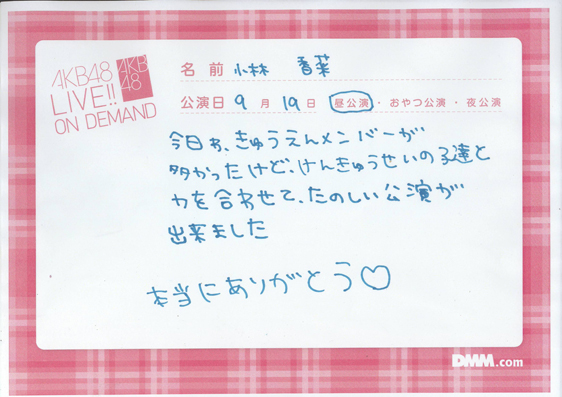 AKB48
LIVE!!
ON DEMAND
AKB
48
名前 小林 香菜
公演日 9月19日 昼公演・おやつ公演・夜公演
今日わ、きゅうえんメンバーが
多かったけど、けんきゅうせいの子達と
力を合わせて、たのしい公演が
出来ました
本当にありがとう♡
DMM.com